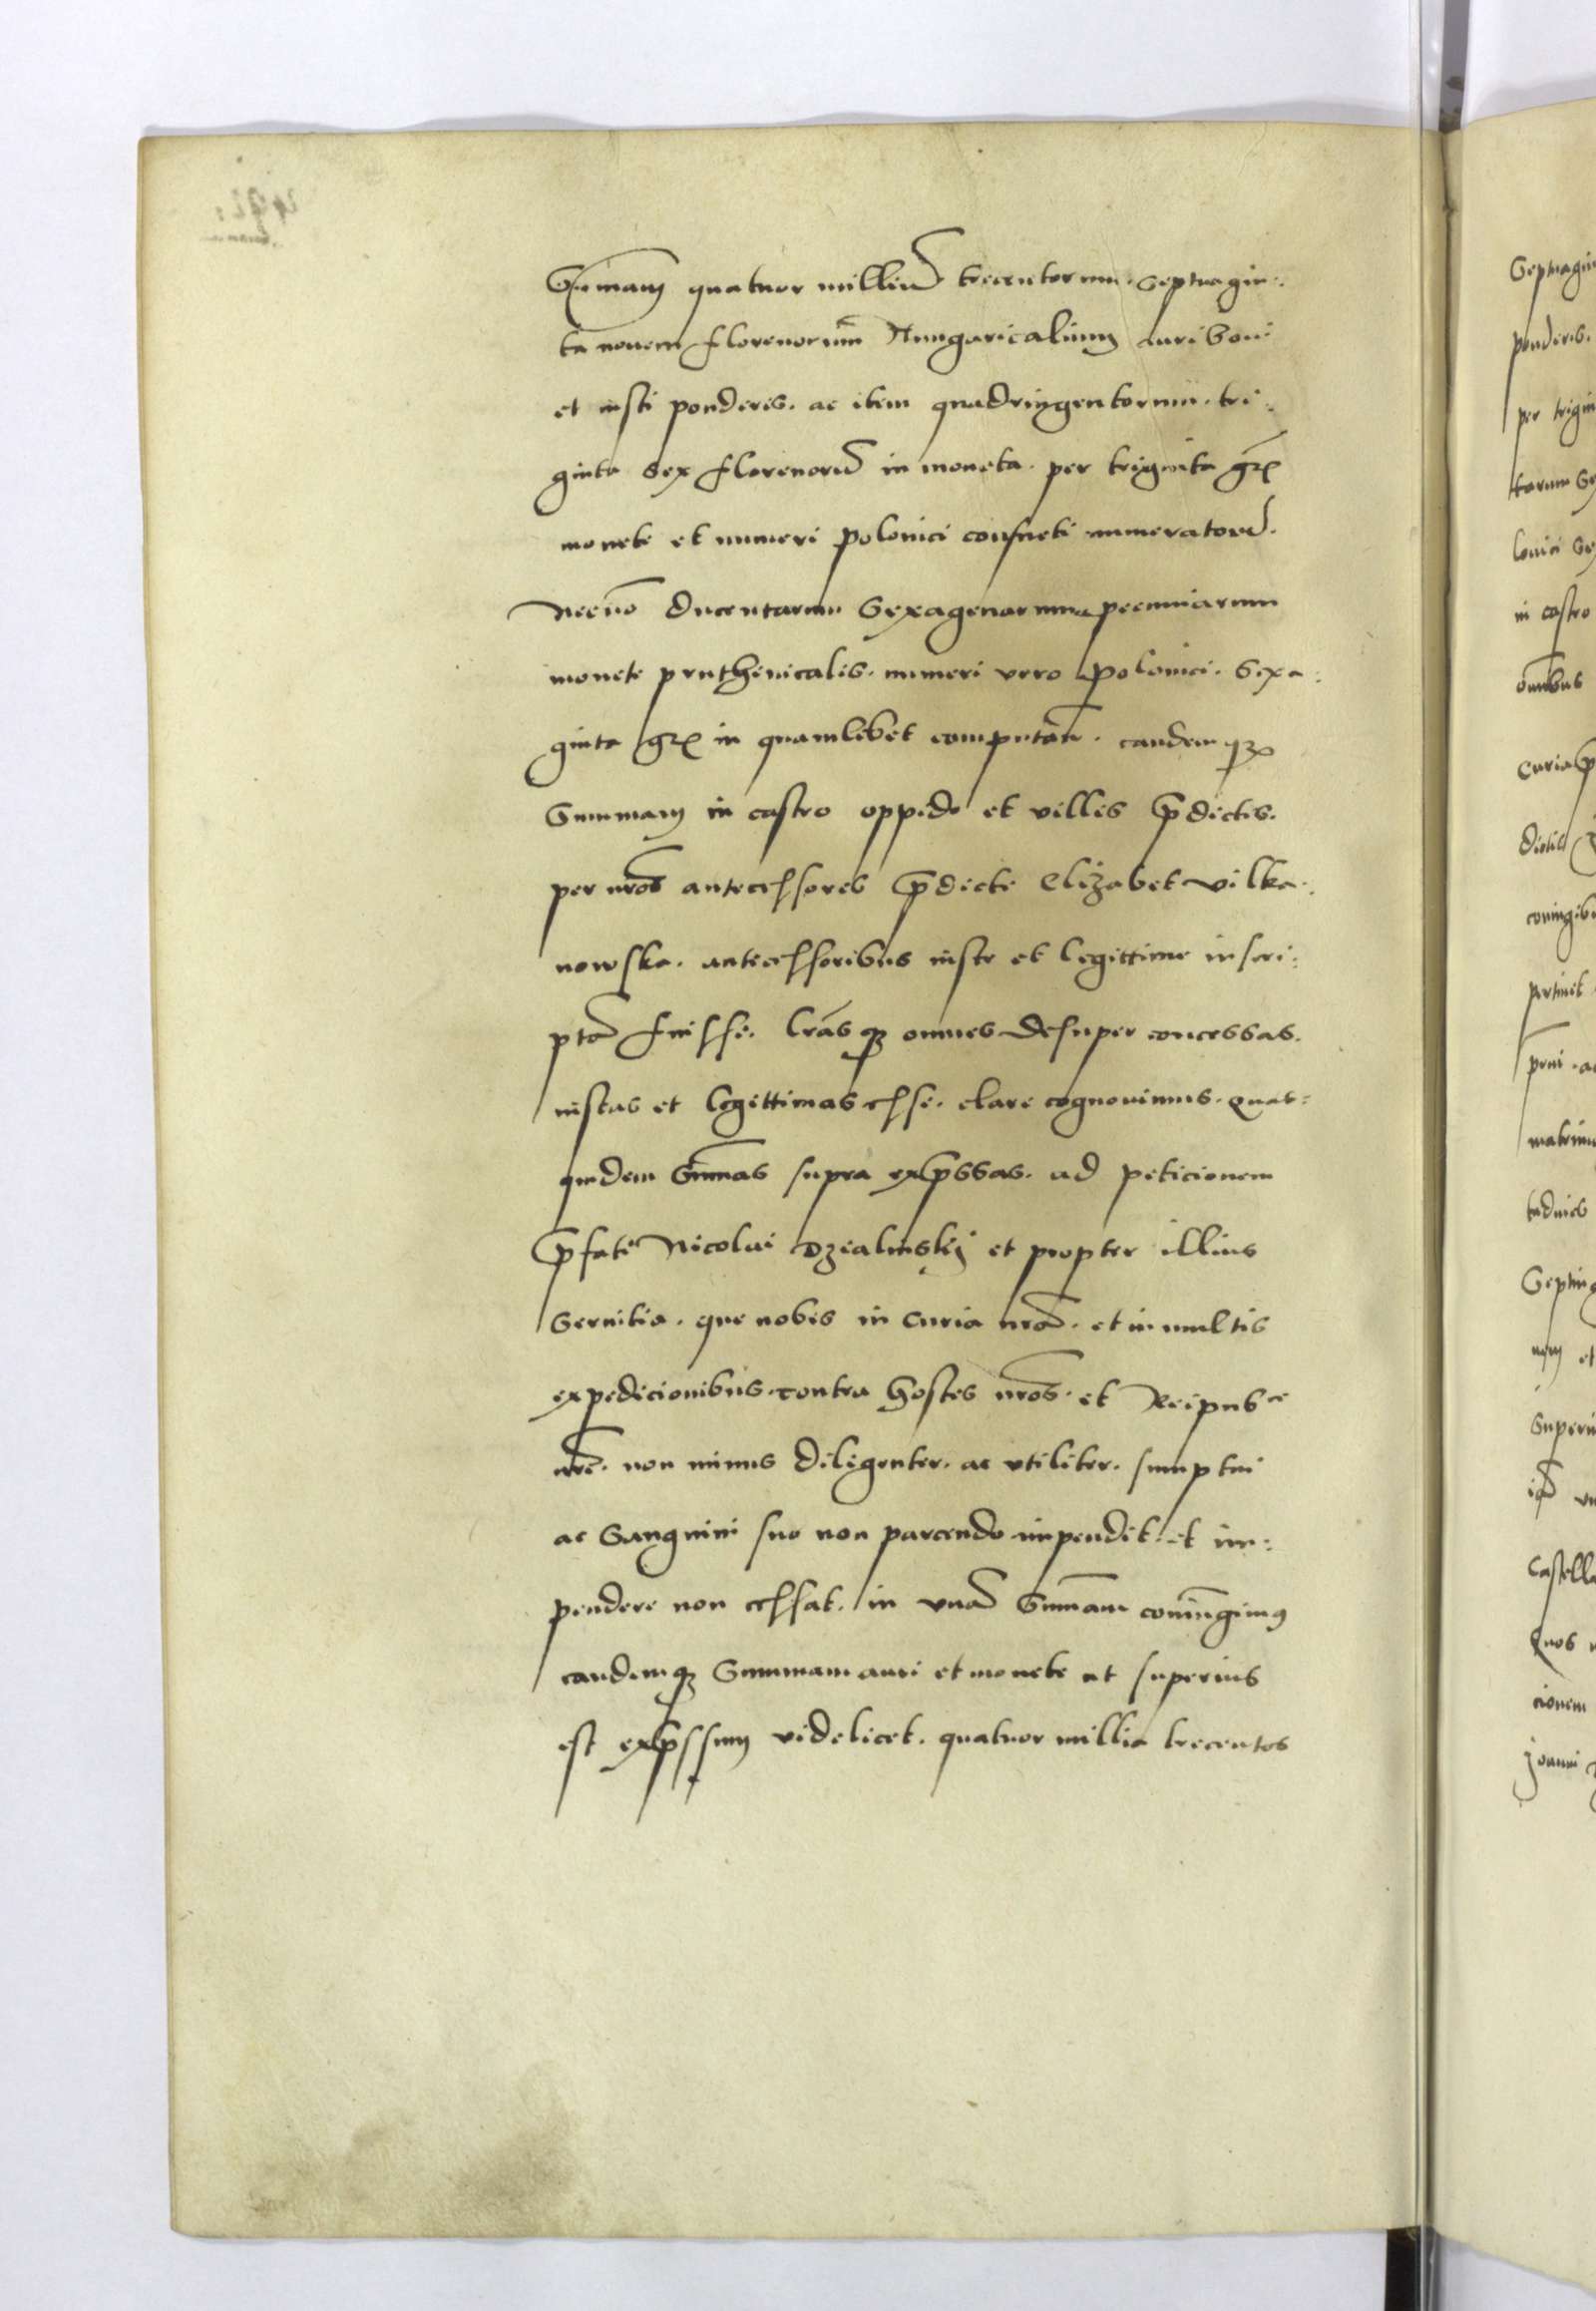 Sum̄am quatuor milliu͂ trecentorum. Septuagin:
ta novem florenorum̄ Hungaricalium auri boni
et iusti ponderis. ac item quadringentorum. tri:
ginta Sex florenoru͂ in moneta. per triginta gr̄
monete et numeri polonici consueti numeratoru͂.
Necnō Ducentarum Sexagenarum pecuniarum
monete pruthenicalis. numeri vero polonici. Sexa:
ginta gr̄ in quamlibet computan̄. eandem qʒ
Summam in castro oppido et villis p̄dictis.
per nr̄os antecessores p̄dicte Elizabet vilka:
nowska. antecessoribus iuste et legittime inscri:
pta͂ fuisse. lr̄as qʒ omnes Desuper concessas.
iustas et legittimas esse. clare cognovimus. Quas:
quidem Sum̄as supra exp̄ssas. ad peticionem
p̄fati Nicolai Dzialinskÿ et propter illius
Servitia. que nobis in Curia nr̄a. et in multis
expedicionibus. contra hostes nr̄os. et Reipubce
nr̄e. non minus Diligenter. ac utiliter. sumptui
ac Sanguini suo non parcendo impendit. et im:
pendere non cessat. in una͂ Sum̄am coniūgimus
eandemqʒ Summam auri et monete ut superius
est exp̄ssum videlicet. quatuor millia trecentos
Septuagin
ponderis.
per trigin
tarum Se
lonici Se
in castro
om̄ibus
Curia
pertinet
Septing
Superiu
Castella
Quos
cionem
Joanni